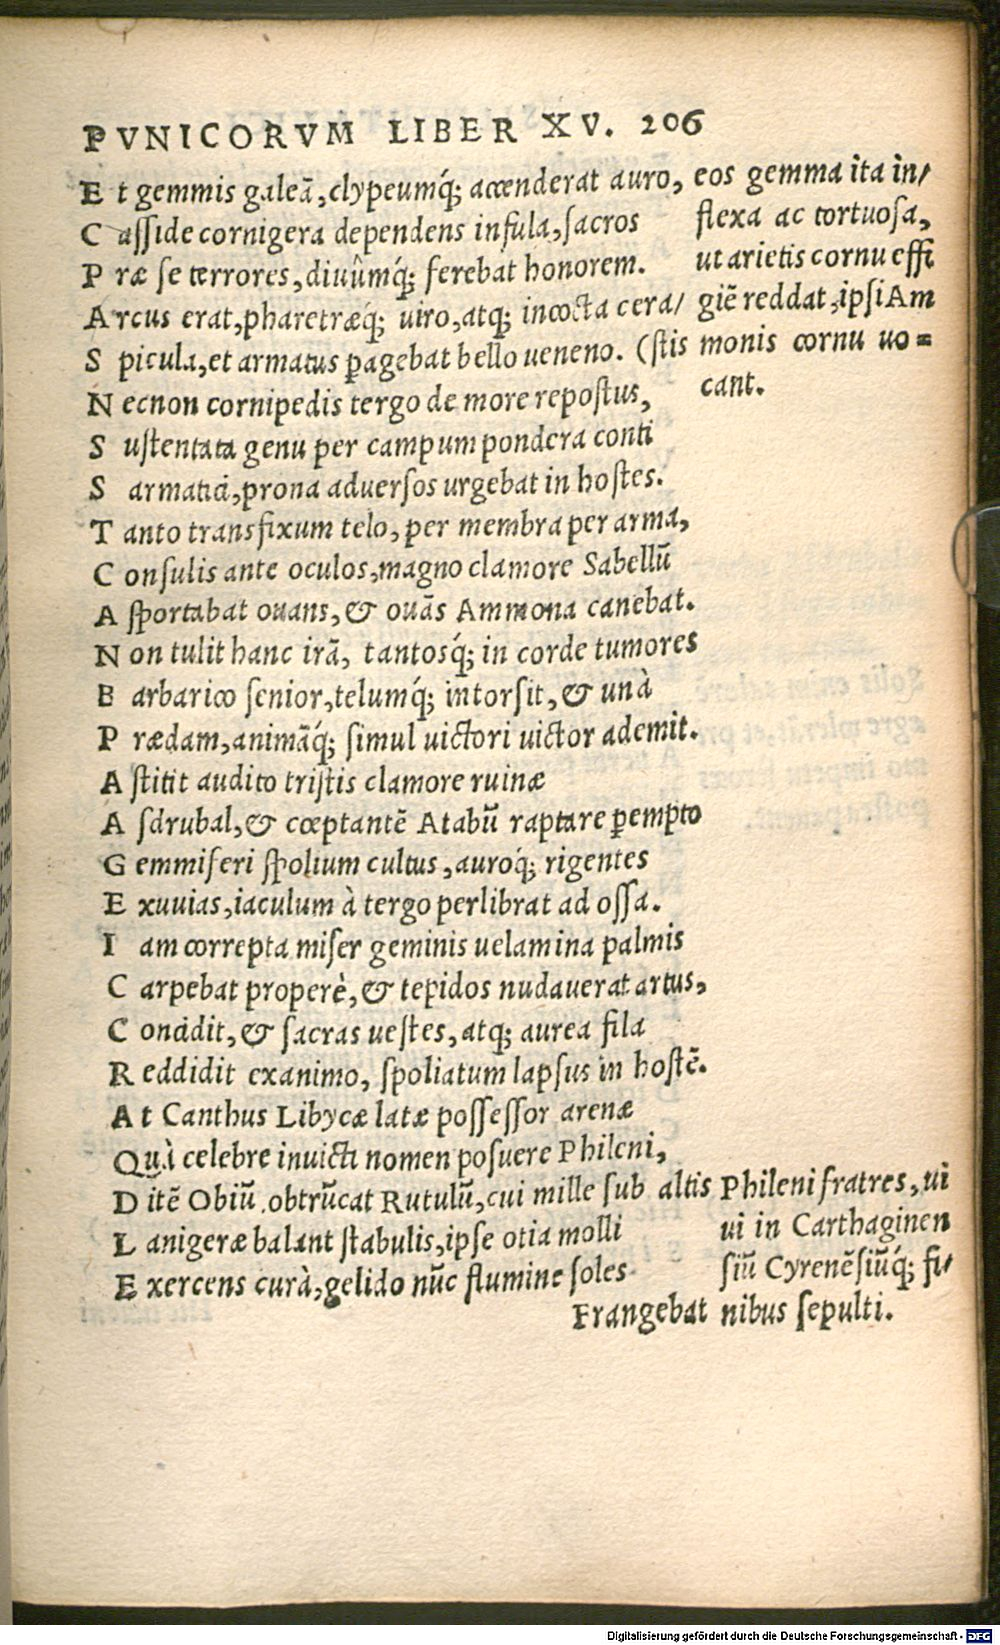 PVNICORVM LIBER XV. 206
E t gemmis galeã, clypeumq́; accenderat auro,
C aſſide cornigera dependens infula, ſacros
P ræ ſe terrores, diuûmq́; ferebat honorem.
A rcus erat, pharetræq́; uiro, atq; incocta cera/
S picula, et armatus ꝑagebat bello ueneno. (ſtis
N ecnon cornipedis tergo de more repoſtus,
S uſtentata genu per campum pondera conti
S armatici, prona aduerſos urgebat in hoſtes.
T anto transfixum telo, per membra per arma,
C onſulis ante oculos, magno clamore Sabellũ
A ſportabat ouans, & ouãs Ammona canebat.
N on tulit hanc irã, tantosq́; in corde tumores
B arbarico ſenior, telumq́; intorſit, & unà
P rædam, animãq́; ſimul uictori uictor ademit.
A ſtitit audito triſtis clamore ruinæ
A ſdrubal, & cœptantẽ Atabũ raptare ꝑempto
G emmiferi ſpolium cultus, auroq́; rigentes
E xuuias, iaculum à tergo perlibrat ad oſſa.
I am correpta miſer geminis uelamina palmis
C arpebat properè, & tepidos nudauerat artus,
C oncidit, & ſacras ueſtes, atq; aurea fila
R eddidit exanimo, ſpoliatum lapſus in hoſtẽ.
A t Canthus Libycæ latæ poſſeſſor arenæ
Q uà celebre inuicti nomen poſuere Phileni,
D itẽ Obiũ obtrũcat Rutulũ, cui mille ſub altis
L anigeræ balant ſtabulis, ipſe otia molli
E xercens curà, gelido nũc flumine ſoles
Frangebat
eos gemma ita in/
flexa ac tortuoſa,
ut arietis cornu effi
giẽ reddat, ipſi Am
monis cornu uo=
cant.
Phileni fratres, ui
ui in Carthaginen
ſiũ Cyrenẽſiũq́; fi/
nibus ſepulti.
Digitalisierung gefördert durch die Deutsche Forschungsgemeinschaft - DFG